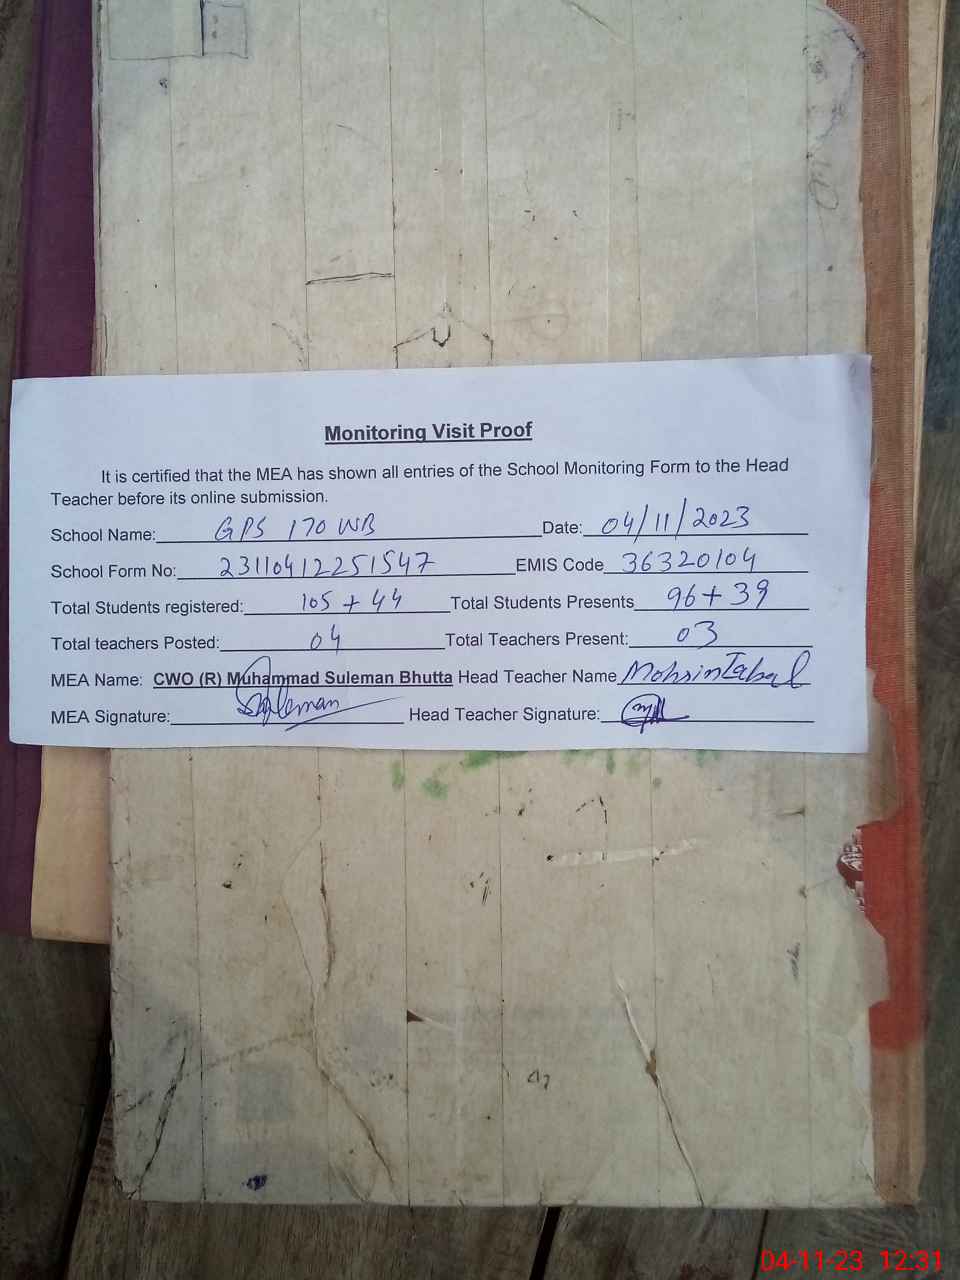 Monitoring Visit Proof
It is certified that the MEA has shown all entries of the School Monitoring Form to the Head
Teacher before its online submission.
School Name: GPS 170 WB Date: 04/11/2023
School Form No: 23110412251547 EMIS Code 36320104
Total Students registered: 105 + 44 Total Students Presents 96 + 39
Total teachers Posted: 04 Total Teachers Present: 03
MEA Name: CWO (R) Muhammad Suleman Bhutta Head Teacher Name Mohsin Iqbal
MEA Signature: Suleman Head Teacher Signature:
04-11-23 12:31